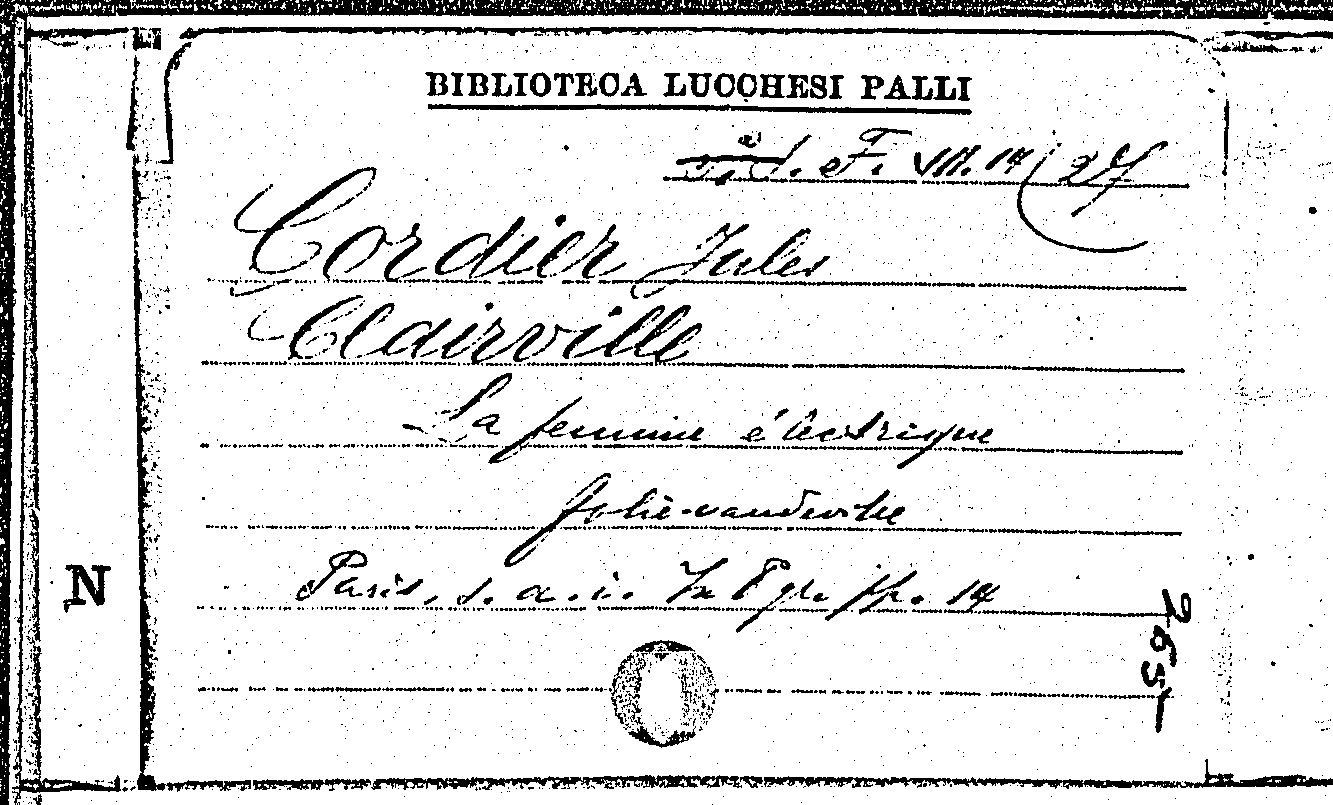 BIBLIOTECA LUCCHESI PALLI
F. VII. 14 (27
Cordier Jules
Clairville
La femme électrique
folie-vaudeville
Paris, s. a. i. In 8 gr. pp. 14
N
265